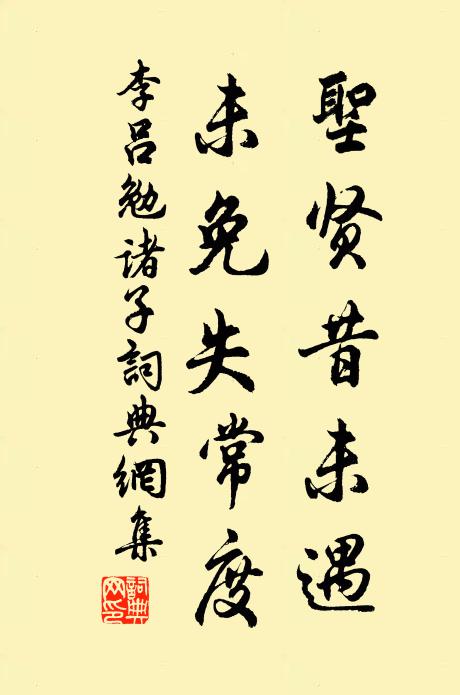 聖贤昔未遇
未免失常度
李吕勉诸子詞典網集
詞典网印